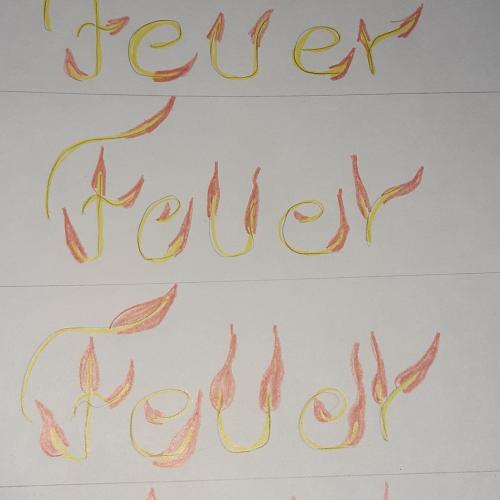 Feuer
Feuer
Feuer